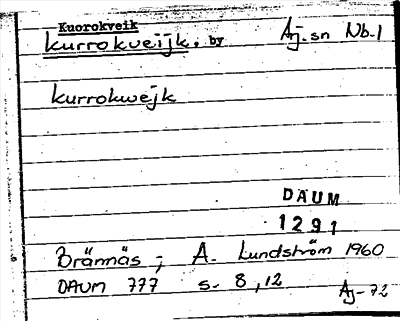 Kuorokveik
kurrokveijk. by Aj.sn Nb-1
kurrokwejk
DAUM
1291
Brännäs ; A. Lundström 1960
DAUM 777 s- 8, 12
Aj-72